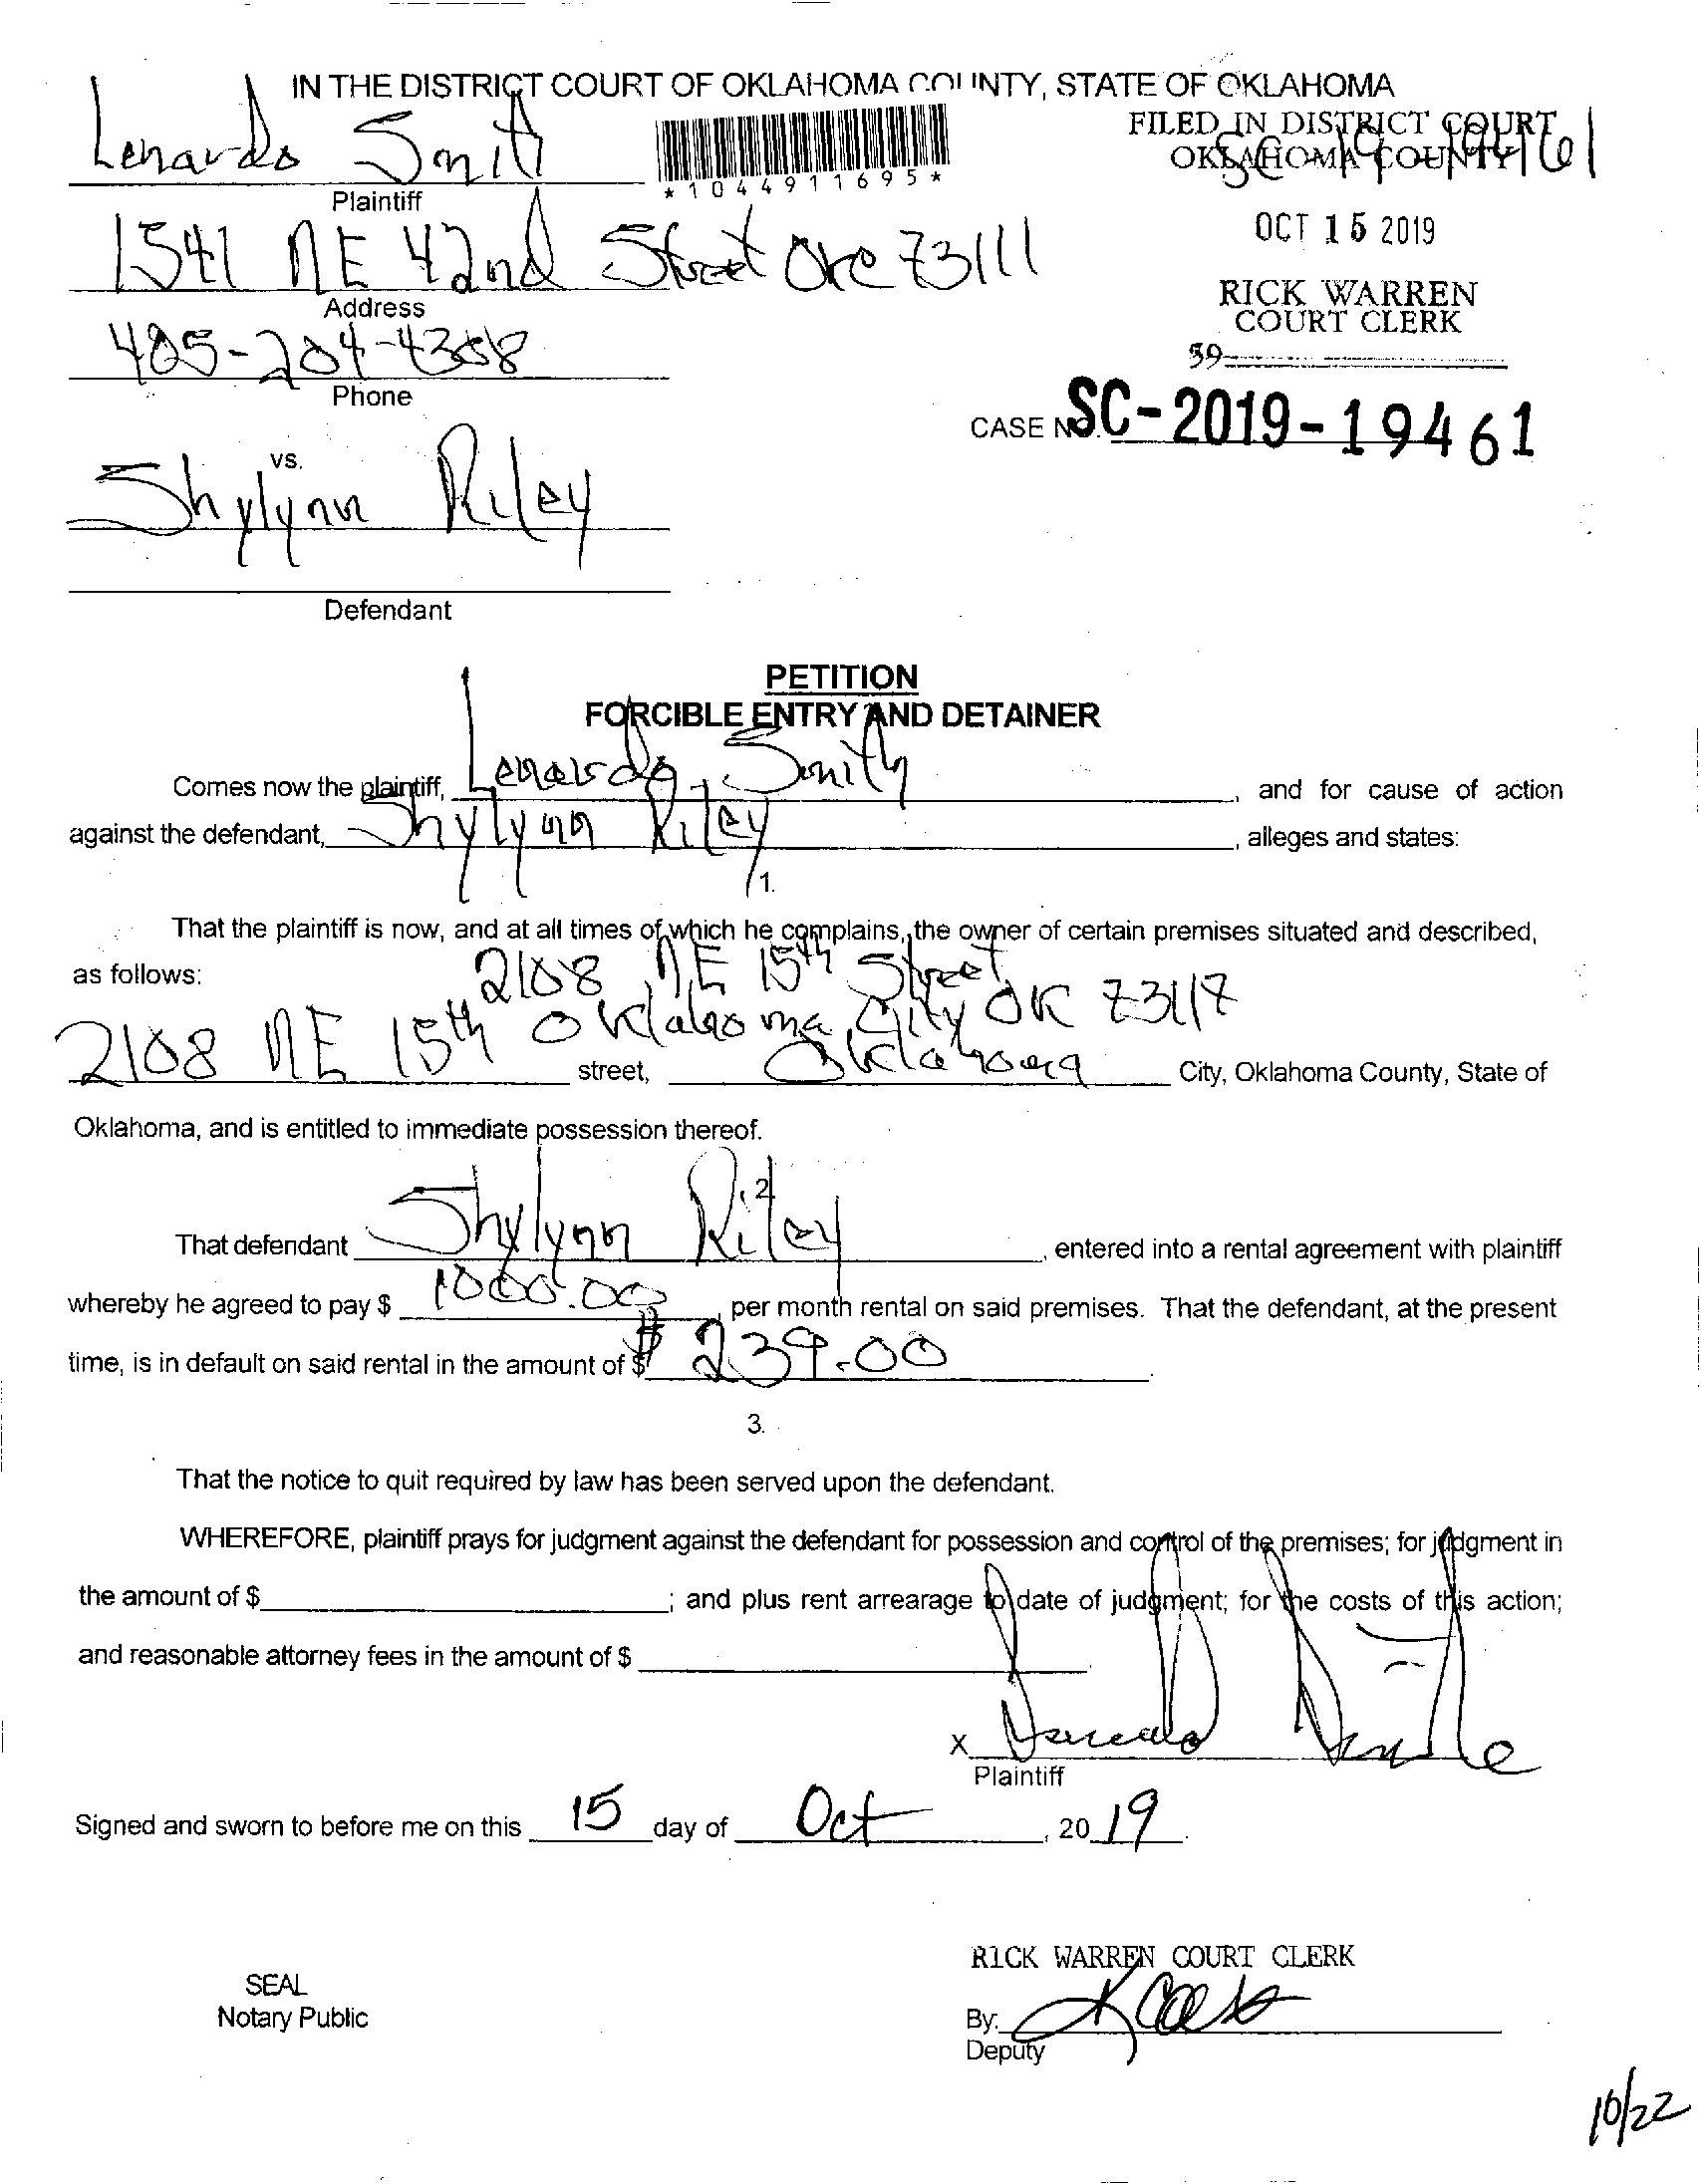 IN THE DISTRICT COURT OF OKLAHOMA COUNTY, STATE OF OKLAHOMA
Lenardo Smith
Plaintiff
*1044911695*
FILED IN DISTRICT COURT
OKLAHOMA COUNTY
SC 19 19461
OCT 15 2019
1541 NE 42nd Street OKC 73111
Address
RICK WARREN
COURT CLERK
405-204-4308
Phone
39
CASE NO. SC-2019-19461
vs.
Shylynn Riley
Defendant
PETITION
FORCIBLE ENTRY AND DETAINER
Comes now the plaintiff, Lenardo Smith, and for cause of action
against the defendant, Shylynn Riley, alleges and states:
1.
That the plaintiff is now, and at all times of which he complains, the owner of certain premises situated and described,
as follows: 2108 NE 15th Street
Oklahoma City OK 73117
2108 NE 15th street, Oklahoma City, Oklahoma County, State of
Oklahoma, and is entitled to immediate possession thereof.
2.
That defendant Shylynn Riley, entered into a rental agreement with plaintiff
whereby he agreed to pay $ 1000.00, per month rental on said premises. That the defendant, at the present
time, is in default on said rental in the amount of $ $ 239.00.
3.
That the notice to quit required by law has been served upon the defendant.
WHEREFORE, plaintiff prays for judgment against the defendant for possession and control of the premises; for judgment in
the amount of $ ; and plus rent arrearage to date of judgment; for the costs of this action;
and reasonable attorney fees in the amount of $
X
Plaintiff
Signed and sworn to before me on this 15 day of Oct, 20 19.
RICK WARREN COURT CLERK
SEAL
Notary Public
By:
Deputy
10/22